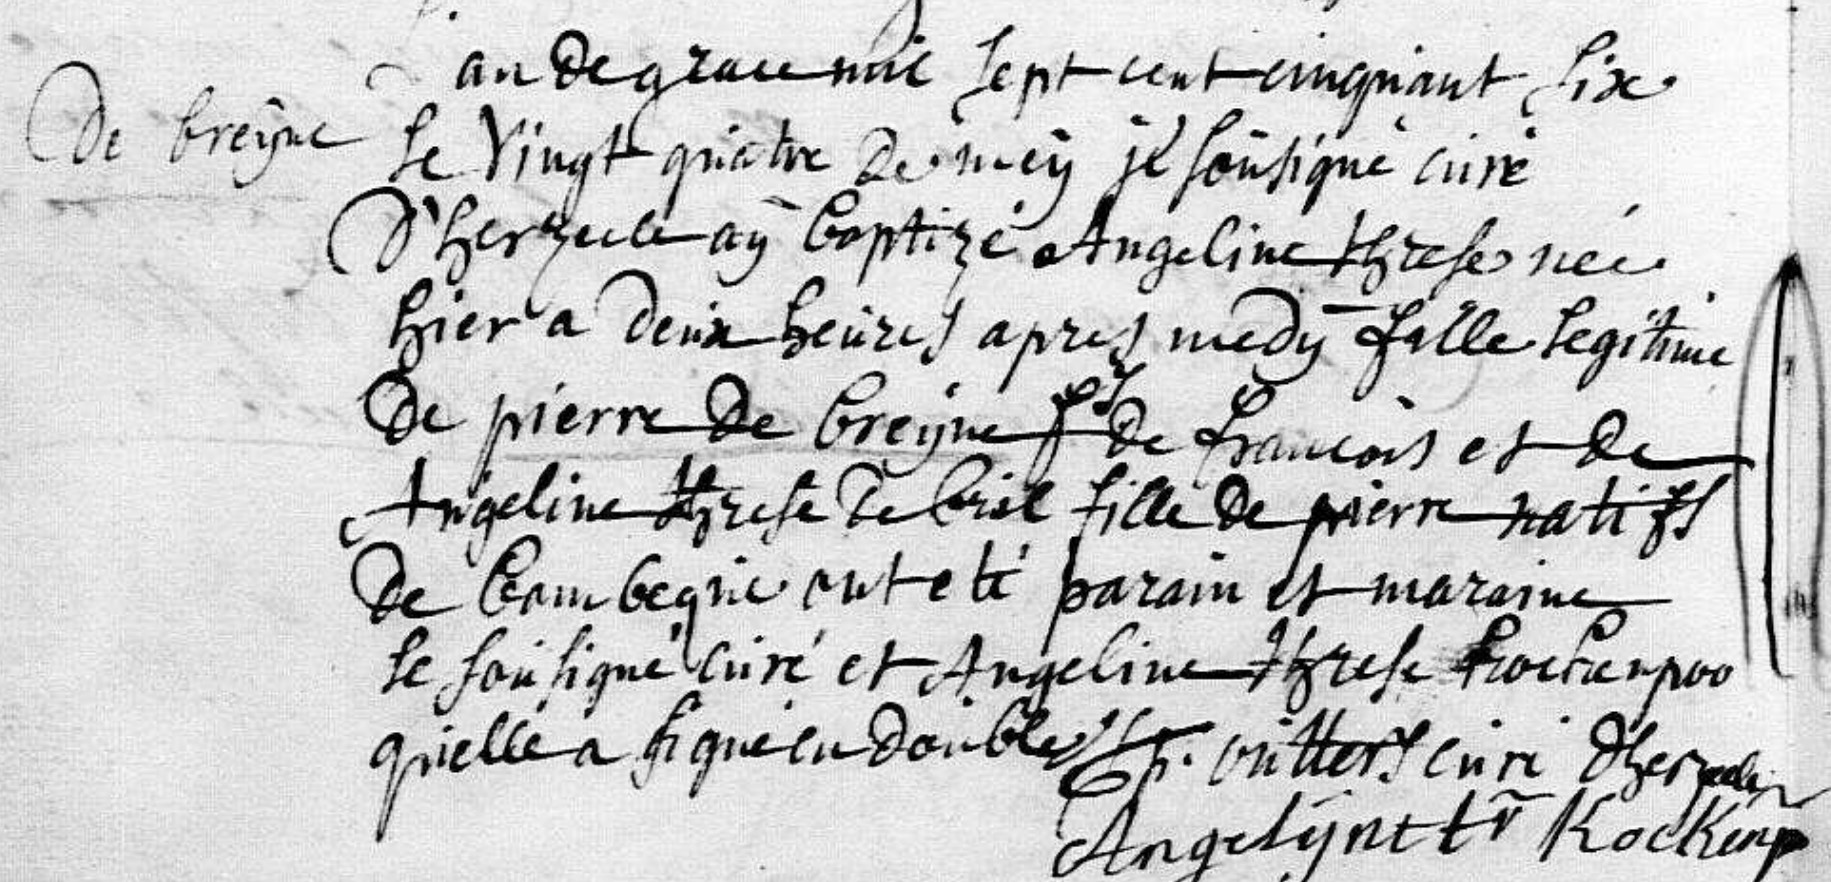 L'an de grace mil sept cent cinquant six
De breÿne
le vingt quatre de meÿ jé sousigné curé
d'herzeele aÿ baptizé Angeline threse neé
hier a deux heures apres medÿ fille legitime
de pierre de breÿne fs de francois et de
Angeline threse de bril fille de pierre natifs
de bambeque ont eté parain et maraine
le sousigné curé et Angeline threse kockenpoo
quielle a signé en double
curé d'herzeele
Angelÿne tr Kockenp